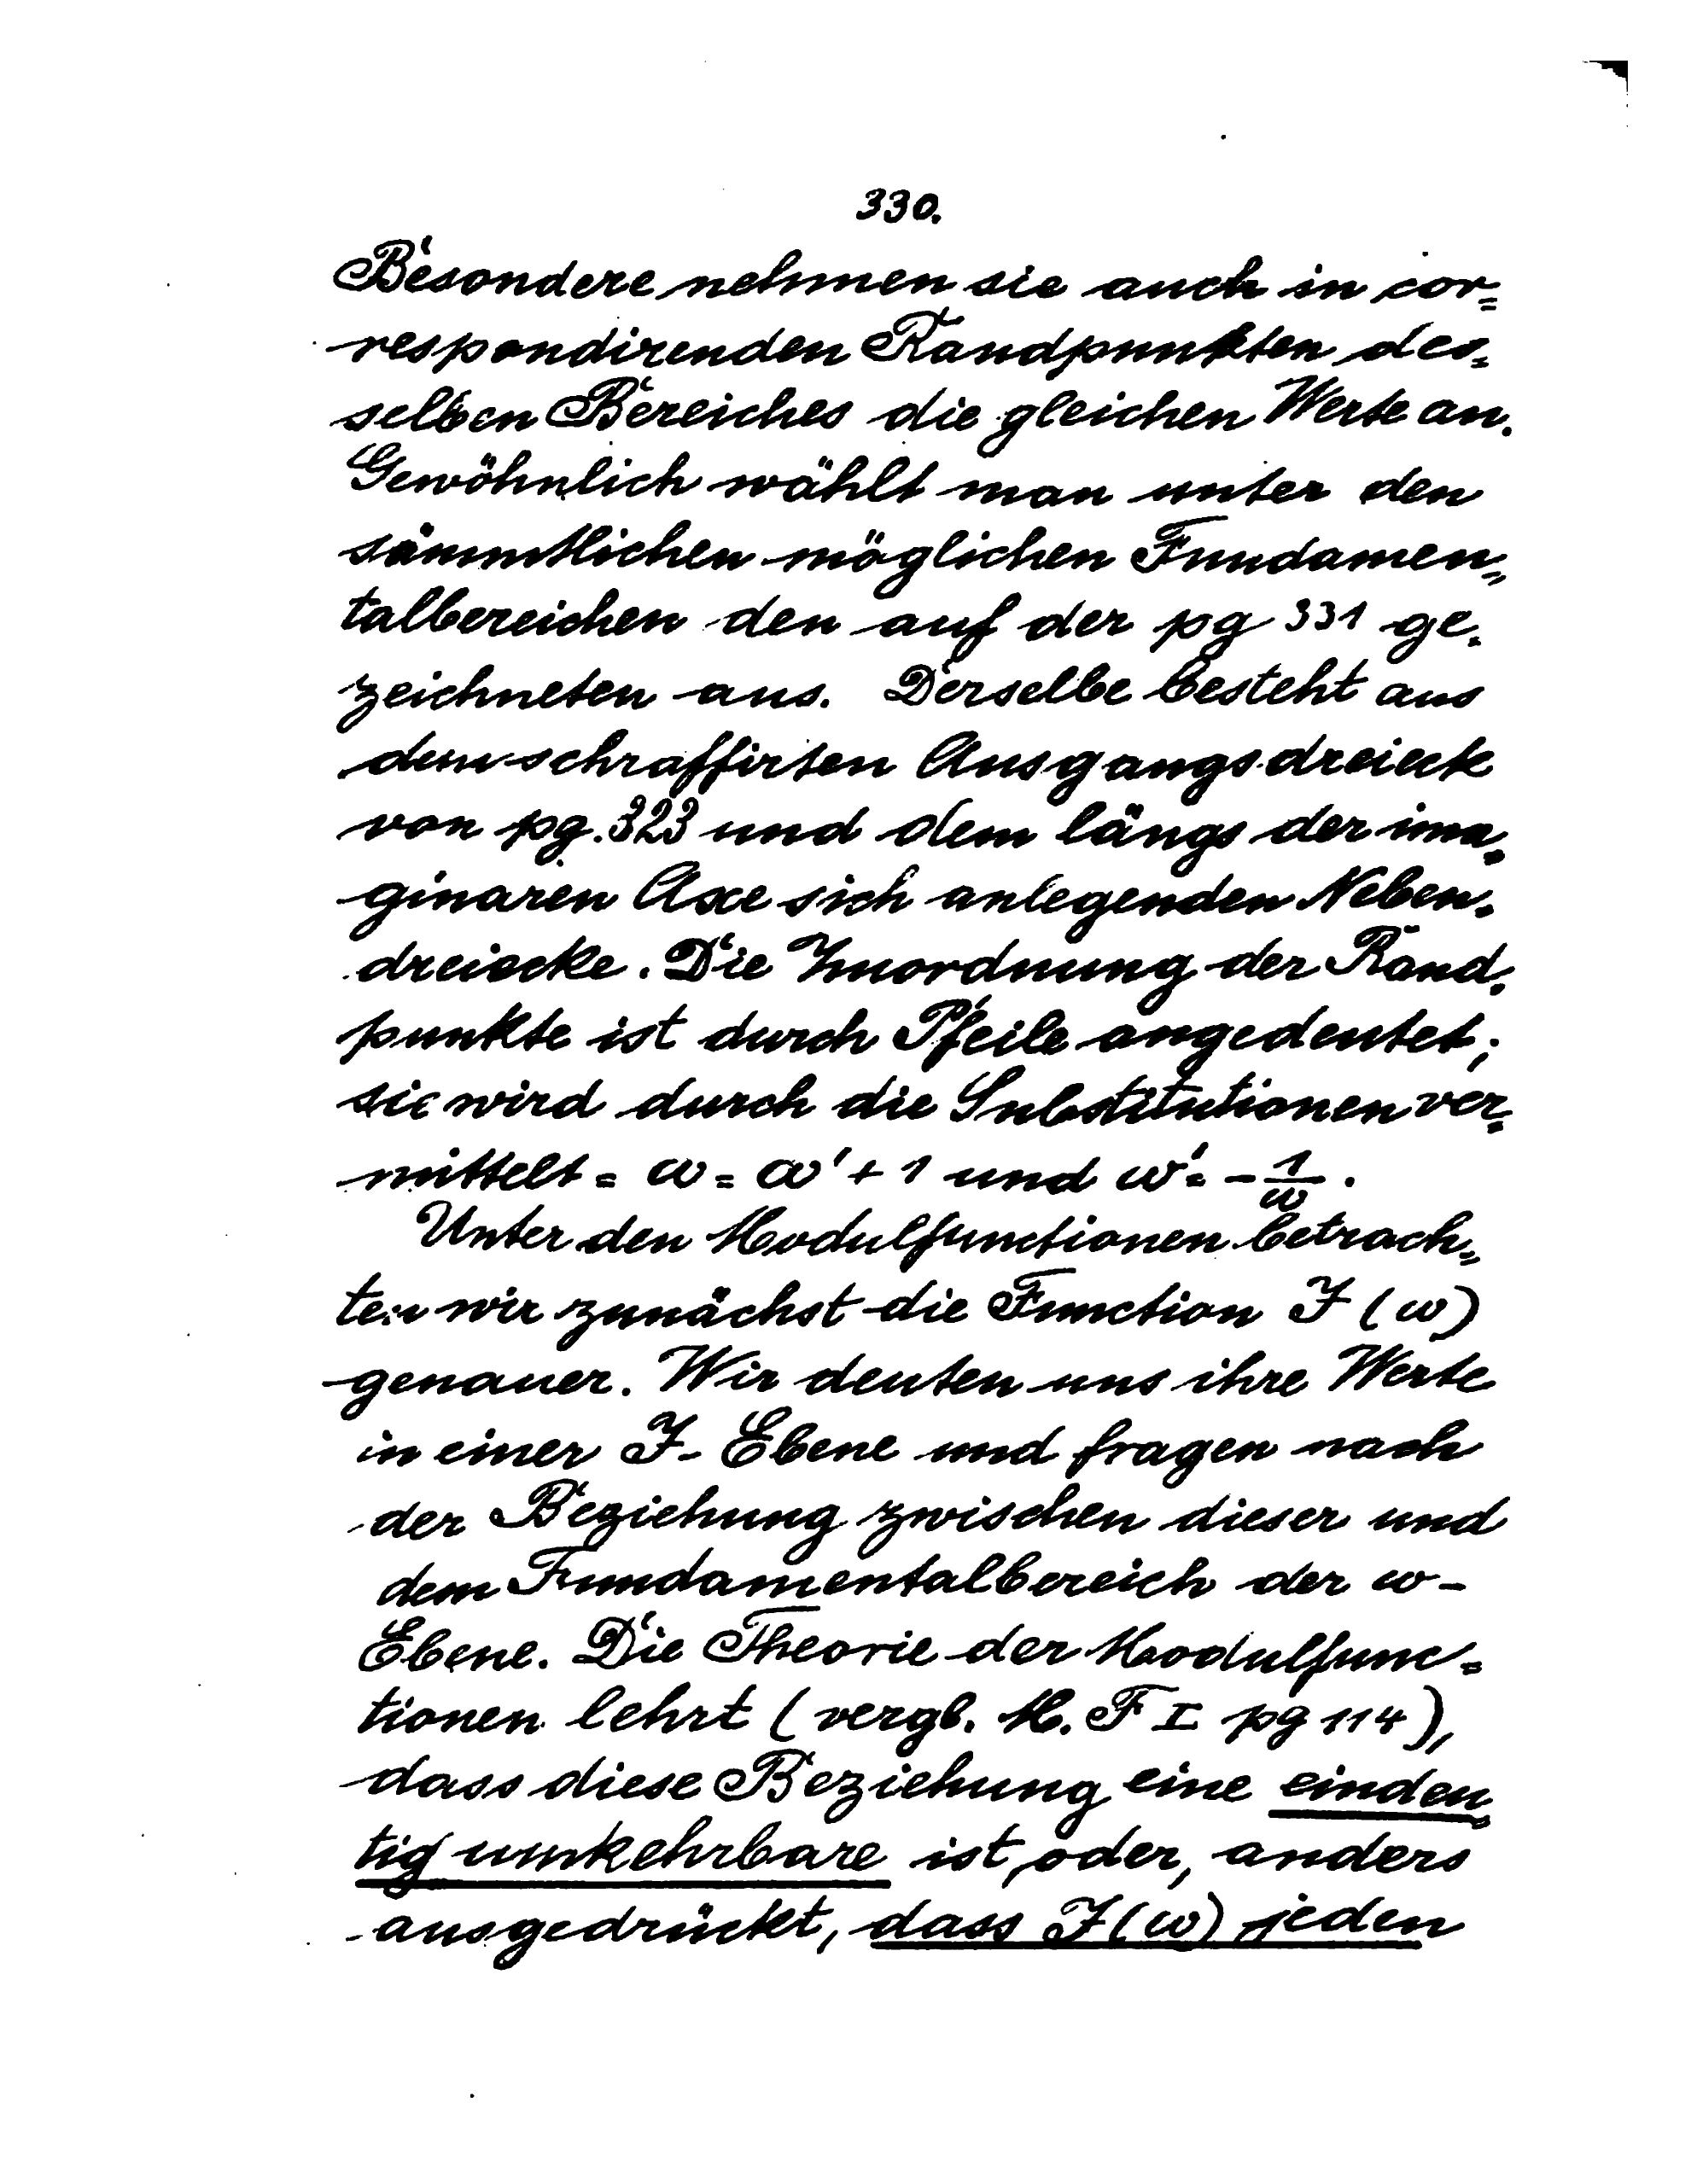 330.
Besondere nehmen sie auch in cor=
respondirenden Randpunkten des=
selben Bereiches die gleichen Werte an.
Gewöhnlich wählt man unter den
sämmtlichen möglichen Fundamen=
talbereichen den auf der pg 331 ge=
zeichneten aus. Derselbe besteht aus
dem schraffirten Ausgangsdreieck
von pg. 323 und dem längs der ima=
ginären Axe sich anlegenden Neben=
dreiecke. Die Zuordnung der Rand=
punkte ist durch Pfeile angedeutet;
sie wird durch die Substitutionen ver=
mittelt = ω = ω' + 1 und ω' = - 1/ω.
Unter den Modulfunctionen betrach=
ten wir zunächst die Function J (ω)
genauer. Wir deuten uns ihre Werte
in einer J- Ebene und fragen nach
der Beziehung zwischen dieser und
dem Fundamentalbereich der ω-
Ebene. Die Theorie der Modulfunc=
tionen lehrt (vergl. M. F I pg 114),
dass diese Beziehung eine eindeu=
tig umkehrbare ist, oder, anders
ausgedrückt, dass J(ω) jeden